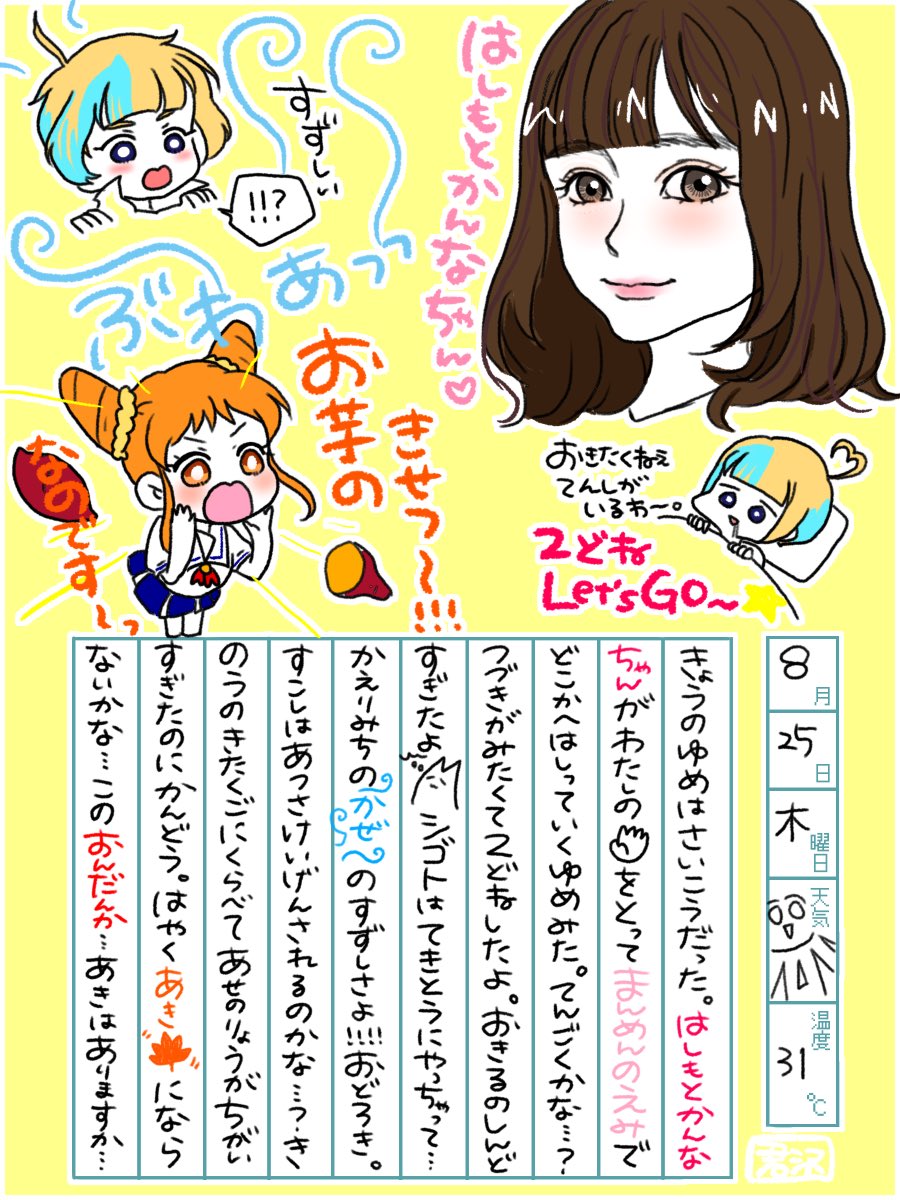 はしもとかんなちゃん♡
すずしい
!!?
ぶわあっ
きせつ〜〜!!!
お芋の
なのです〜っ
おきたくねぇ
てんしが
いるわ〜。
2どね
Let'sGO〜
8月
25日
木曜日
天気
温度
31℃
きょうのゆめはさいこうだった。はしもとかんな
ちゃんがわたしの をとってまんめんのえみで
どこかへはしっていくゆめみた。てんごくかな…?
つづきがみたくて2どねしたよ。おきるのしんど
すぎたよ シゴトはてきとうにやっちゃって…
かえりみちのかぜ〜のすずしさよ!!!!おどろき。
すこしはあつさけいげんされるのかな…?き
のうのきたくごにくらべてあせのりょうがちがい
すぎたのにかんどう。はやくあき になら
ないかな…このおんだんか…あきはありますか…
君沢